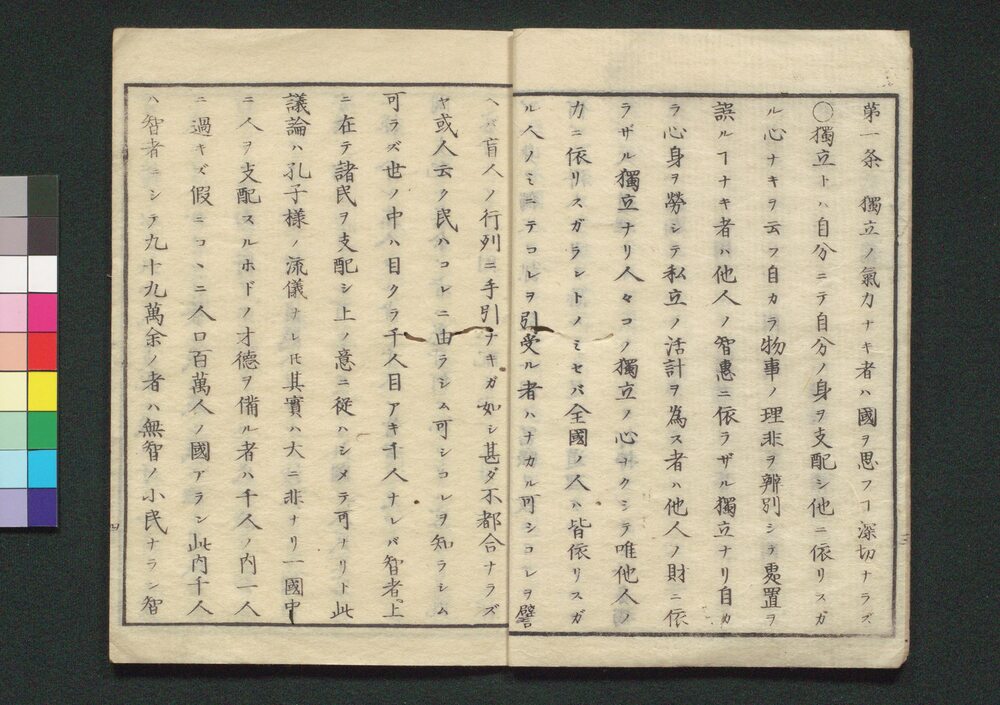 第一条 獨立ノ氣力ナキ者ハ國ヲ思フヿ深切ナラズ
〇獨立トハ自分ニテ自分ノ身ヲ支配シ他ニ依リスガ
ル心ナキヲ云フ自カラ物事ノ理非ヲ辨別シテ處置ヲ
誤ルヿナキ者ハ他人ノ智惠ニ依ラザル獨立ナリ自カ
ラ心身ヲ勞シテ私立ノ活計ヲ為ス者ハ他人ノ財ニ依
ラザル獨立ナリ人々コノ獨立ノ心ナクシテ唯他人ノ
力ニ依リスガラントノミセバ全國ノ人ハ皆依リスガ
ル人ノミニテコレヲ引受ル者ハナカル可シコレヲ譬
ヘバ盲人ノ行列ニ手引ナキガ如シ甚ダ不都合ナラズ
ヤ或人云ク民ハコレニ由ラシム可シコレヲ知ラシム
可ラズ世ノ中ハ目クラ千人目アキ千人ナレバ智者上
ニ在テ諸民ヲ支配シ上ノ意ニ従ハシメテ可ナリト此
議論ハ孔子様ノ流儀ナレ𪜈其實ハ大ニ非ナリ一國中
ニ人ヲ支配スルホドノ才德ヲ備ル者ハ千人ノ内一人
ニ過キズ假ニコヽニ人口百萬人ノ國アラン此内千人
ハ智者ニシテ九十九萬余ノ者ハ無智ノ小民ナラン智
三
四